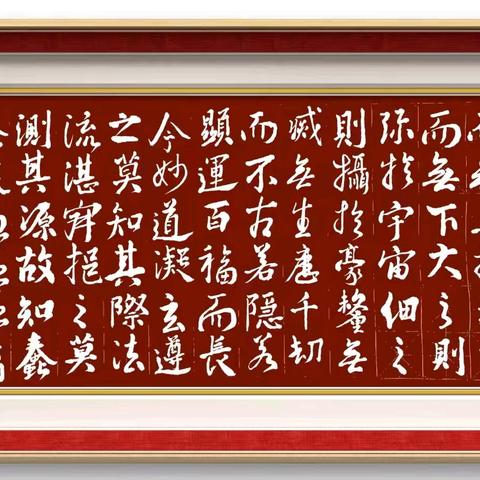 而無下大之則
弥於宇宙細之
則攝於豪釐無
滅無生歷千劫
而不古若隱若
顯運百福而長
今妙道凝玄遵
之莫知其際法
流湛寂挹之莫
測其源故知蠢